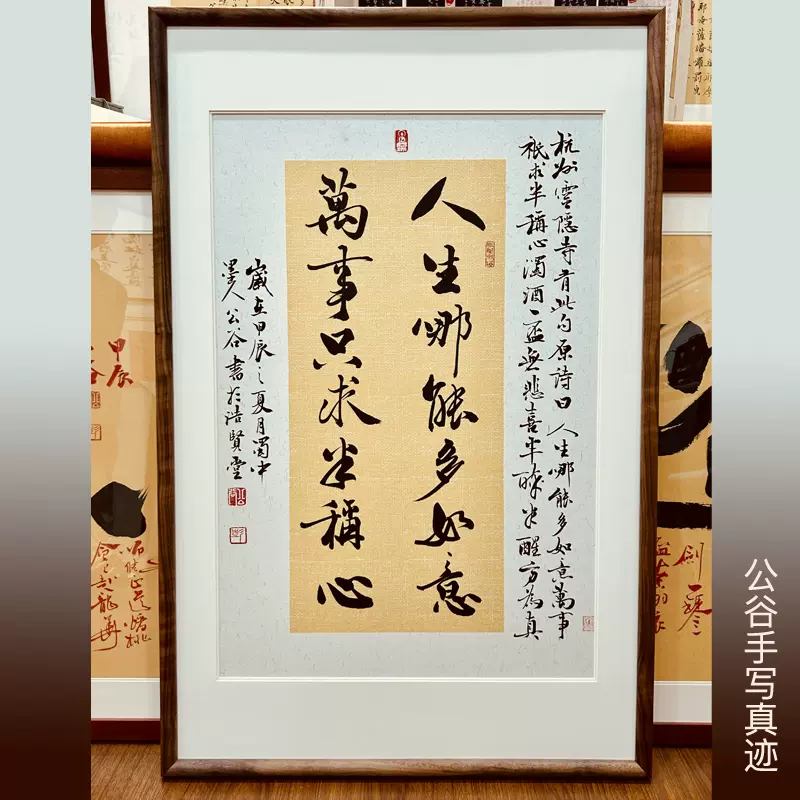 杭州靈隱寺有此句原詩曰人生哪能多如意萬事
祇求半稱心濁酒一盃無悲喜半醉半醒方為真
人生哪能多如意
萬事只求半稱心
歲在甲辰之夏月蜀中
墨人公谷書於浩賢堂
甲辰
公谷手写真迹